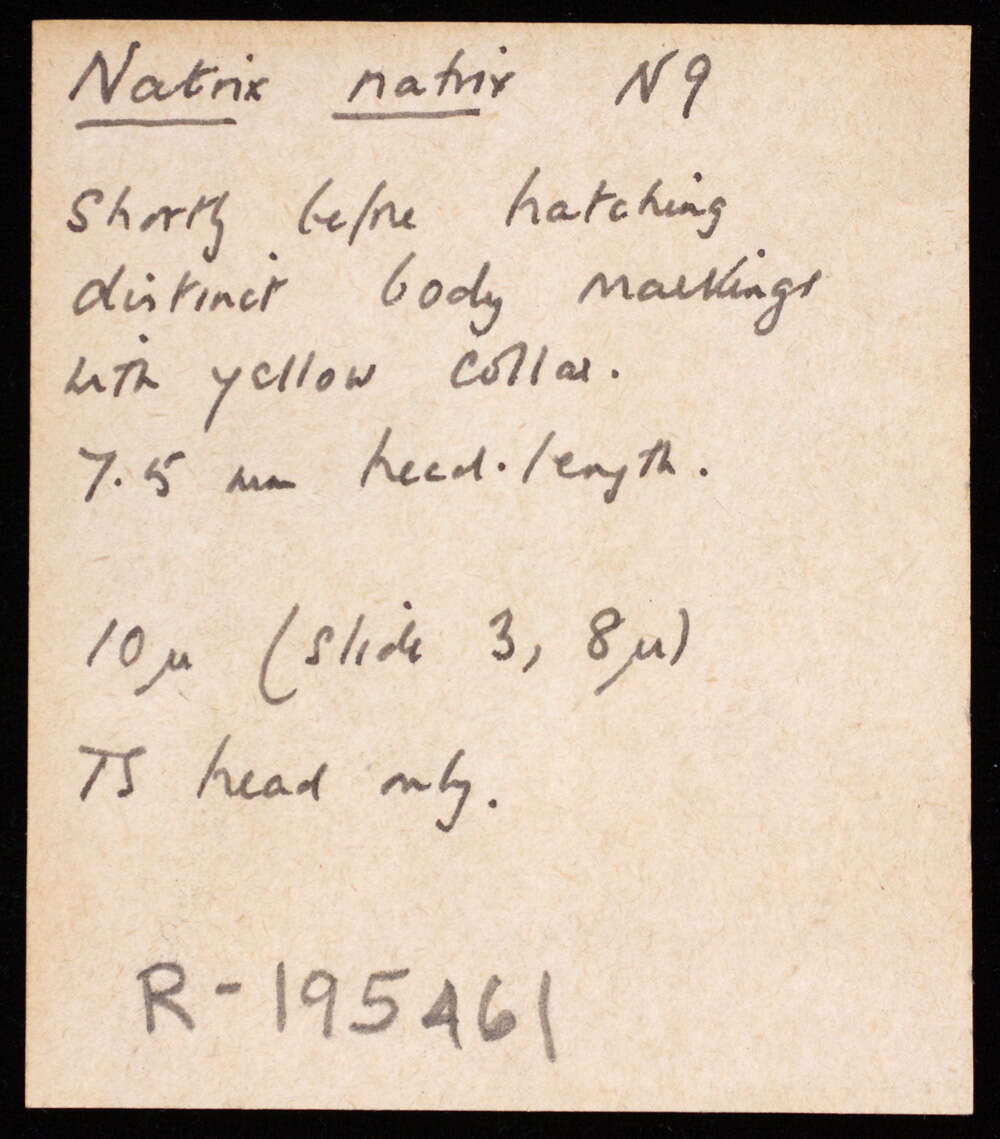 Natrix natrix N9
Shortly before hatching
distinct body markings
with yellow collar.
7.5 mm head-length.
10µ (slide 3, 8µ)
TS head only.
R-195461